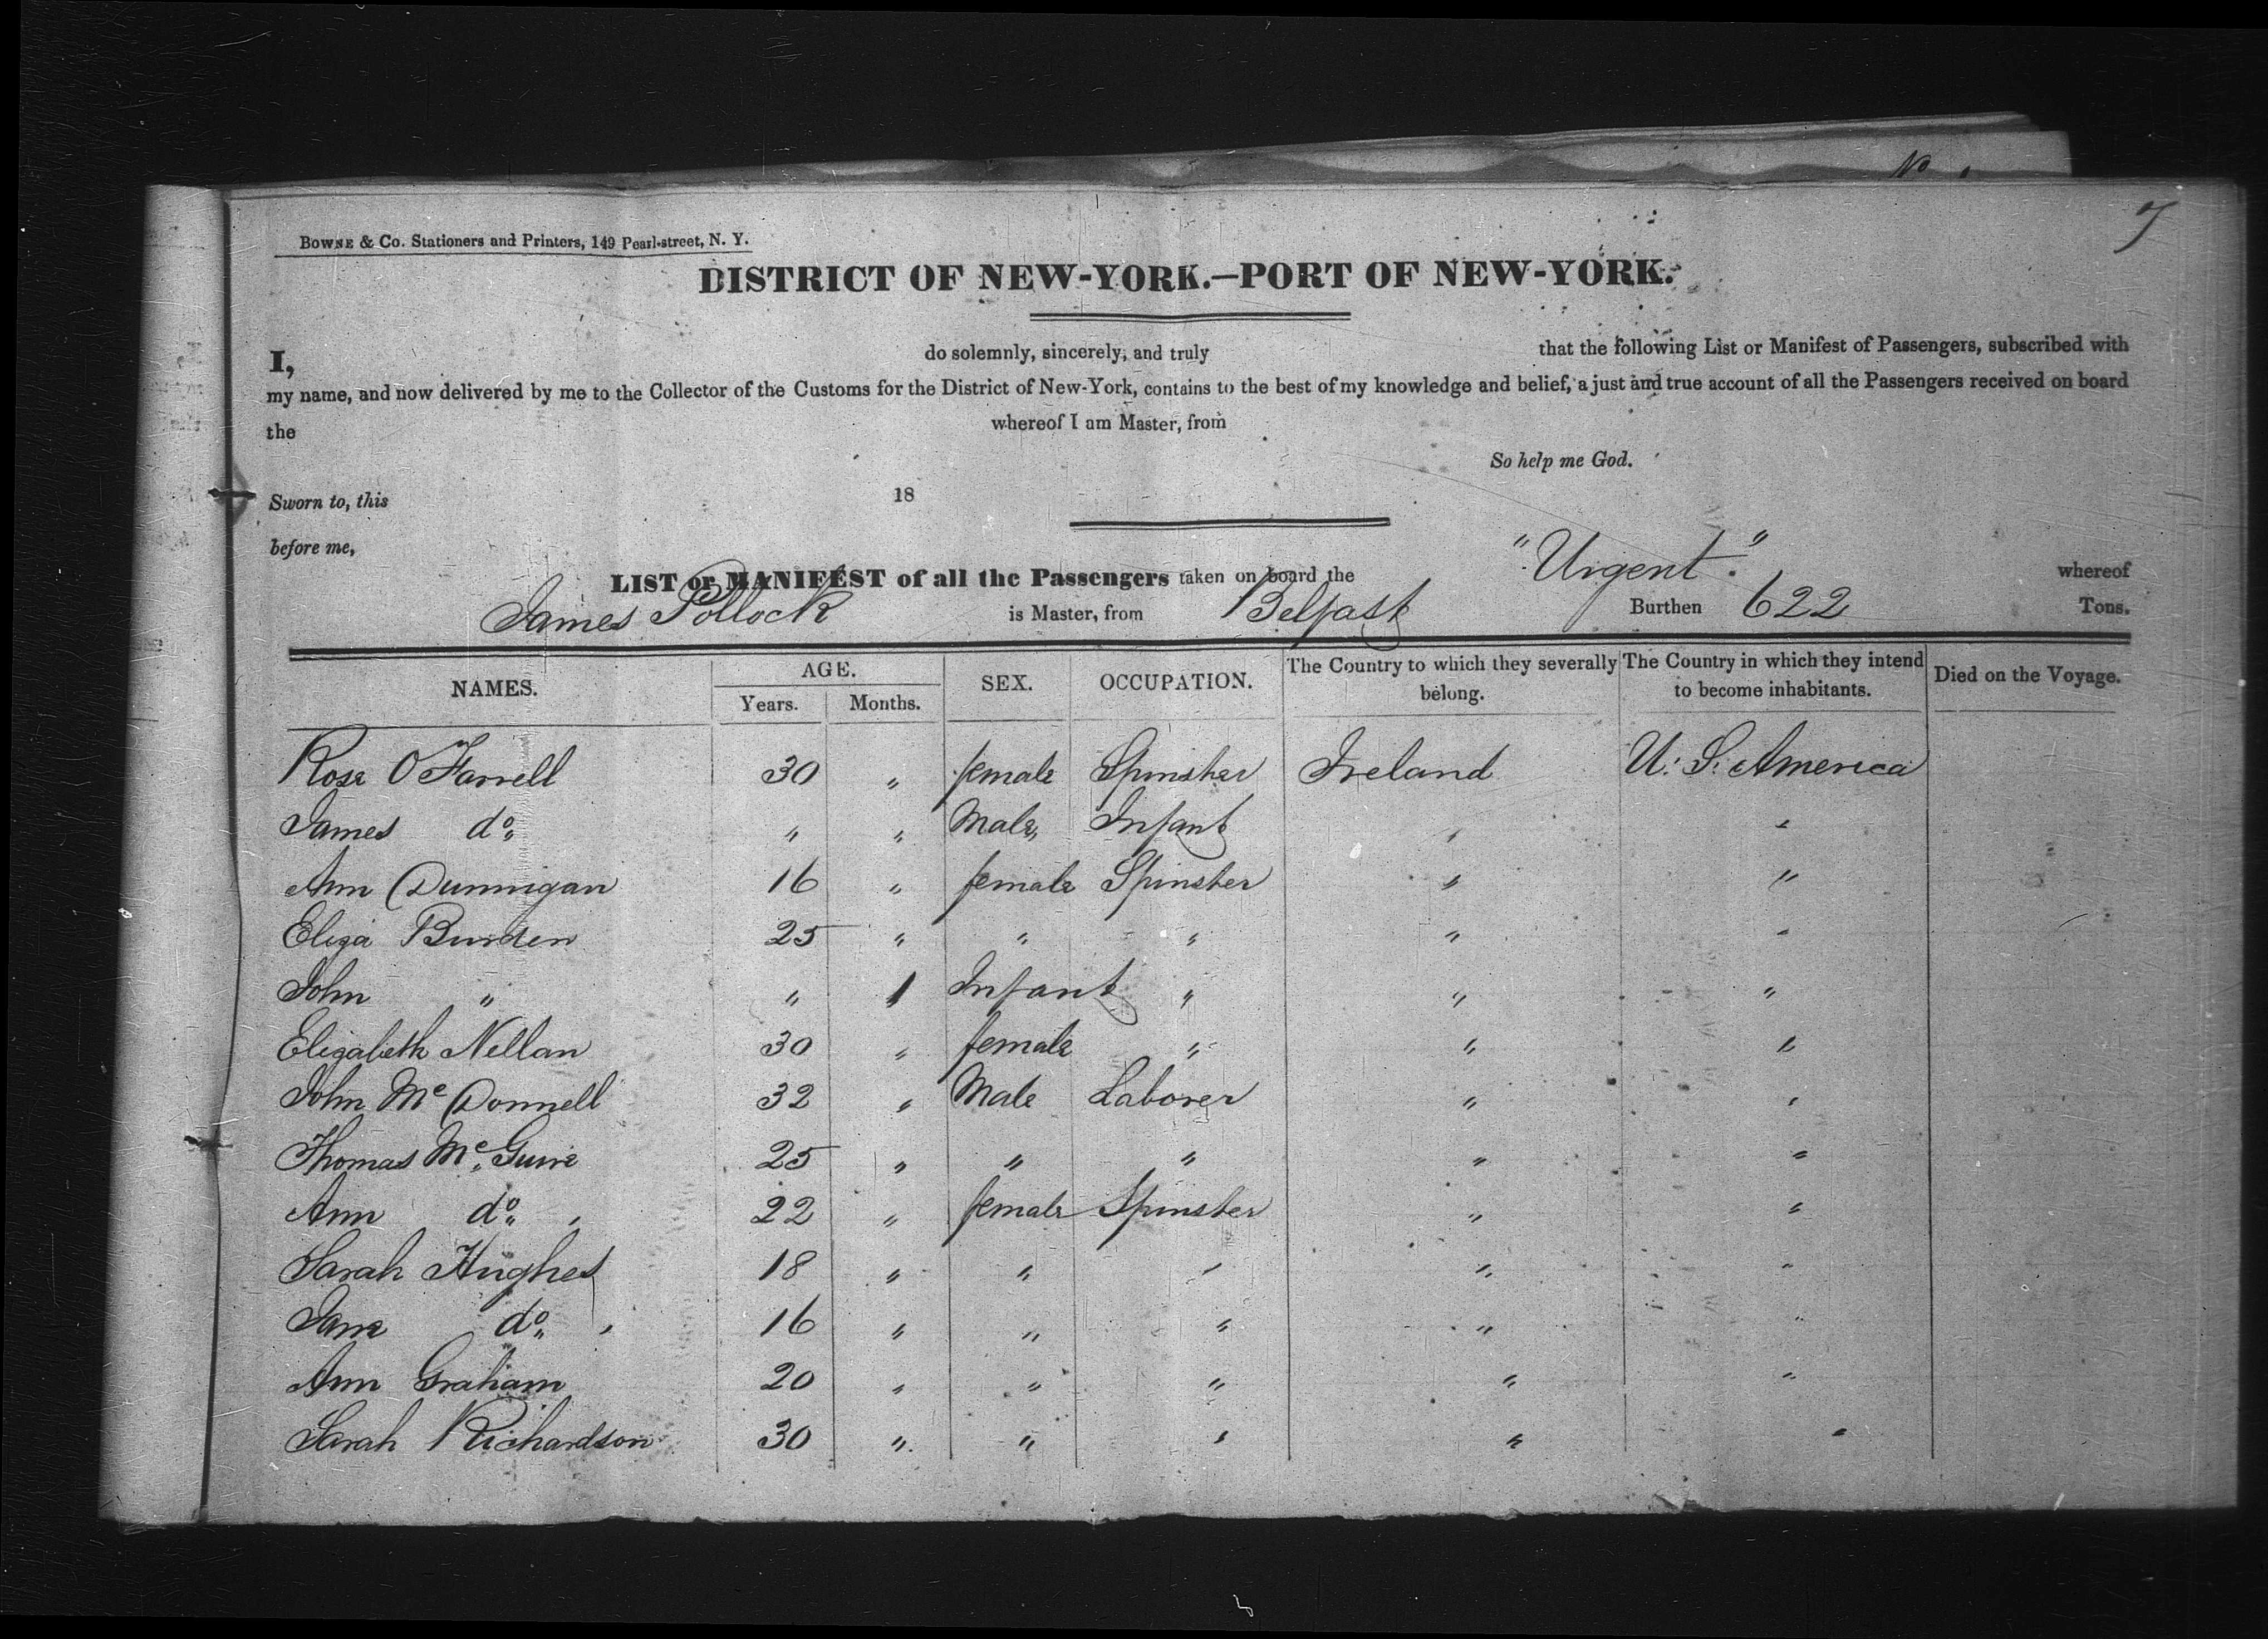 No
7
BOWNE & Co. Stationers and Printers, 149 Pearl-street, N. Y.
DISTRICT OF NEW-YORK.—PORT OF NEW-YORK.
I, do solemnly, sincerely, and truly that the following List or Manifest of Passengers, subscribed with
my name, and now delivered by me to the Collector of the Customs for the District of New-York, contains to the best of my knowledge and belief, a just and true account of all the Passengers received on board
the whereof I am Master, from
So help me God.
Sworn to, this 18
before me,
LIST or MANIFEST of all the Passengers taken on board the "Urgent" whereof
James Pollock is Master, from Belfast Burthen 622 Tons.
NAMES. AGE. Years. Months. SEX. OCCUPATION. The Country to which they severally belong. The Country in which they intend to become inhabitants. Died on the Voyage.
Rose O'Farrell 30 " female Spinster Ireland U. S. America
James do " " Male Infant " "
Ann Dunnigan 16 " female Spinster " "
Eliza Burden 25 " " " " "
John " " 1 Infant " " "
Elizabeth Nellan 30 " female " " "
John McDonnell 32 " Male Laborer " "
Thomas McGuire 25 " " " " "
Ann do 22 " female Spinster " "
Sarah Hughes 18 " " " " "
Jane do 16 " " " " "
Ann Graham 20 " " " " "
Sarah Richardson 30 " " " " "